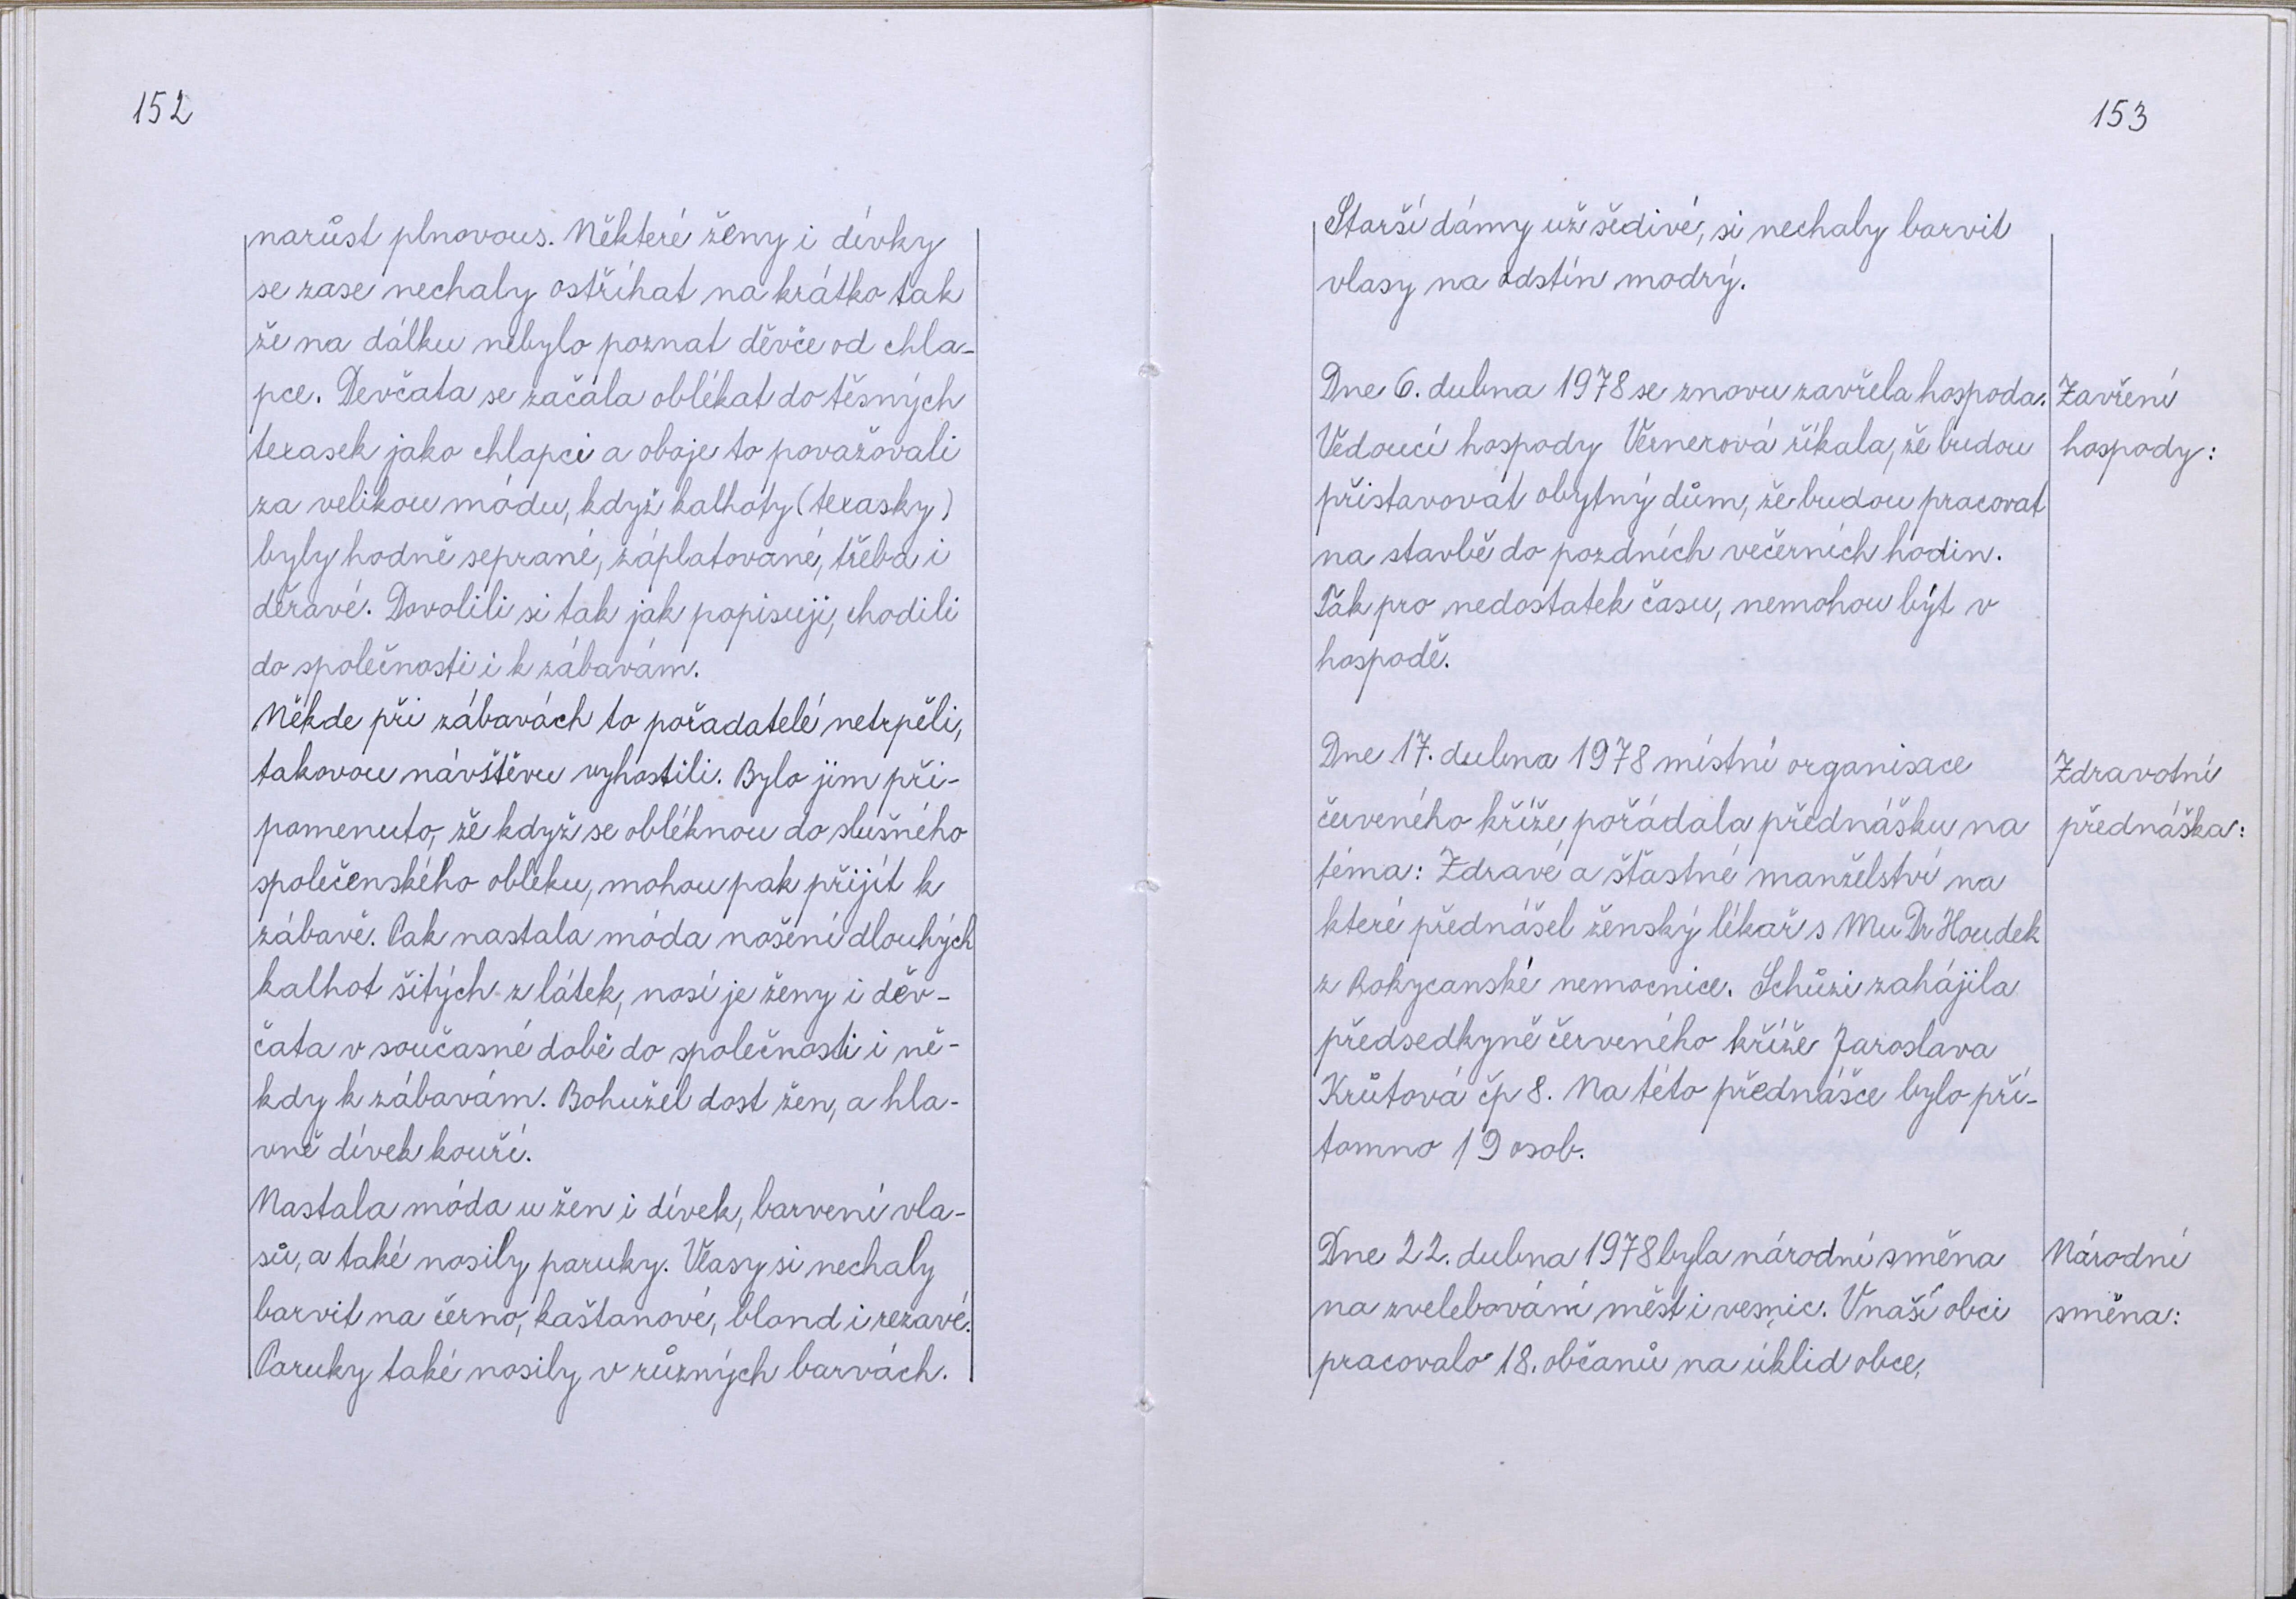 152
narůst plnovous. Některé ženy i dívky
se zase nechaly ostříhat na krátko tak
že na dálku nebylo poznat děvče od chla-
pce. Devčata se začala oblékat do těsných
texasek jako chlapci a oboje to považovali
za velikou módu, když kalhoty (texasky)
byly hodně seprané, záplatované, třeba i
děravé. Dovolili si tak jak popisuji, chodili
do společnosti i k zábavám.
Někde při zábavách to pořadatelé netrpěli,
takovou návštěvu vyhostili. Bylo jim při-
pomenuto, že když se obléknou do slušného
společenského obleku, mohou pak přijít k
zábavě. Pak nastala móda nošení dlouhých
kalhot šitých z látek, nosí je ženy i děv-
čata v současné době do společnosti i ně-
kdy k zábavám. Bohužel dost žen, a hla-
vně dívek kouří.
Nastala móda u žen i dívek, barvení vla-
sů, a také nosily paruky. Vlasy si nechaly
barvit na černo, kaštanové, blond i rezavé.
Paruky také nosily v různých barvách.
153
Starší dámy už šedivé, si nechaly barvit
vlasy na odstín modrý.
Dne 6. dubna 1978 se znovu zavřela hospoda.
Vedoucí hospody Vernerová říkala, že budou
přistavovat obytný dům, že budou pracovat
na stavbě do pozdních večerních hodin.
Pak pro nedostatek času, nemohou být v
hospodě.
Zavření
hospody:
Dne 17. dubna 1978 místní organisace
červeného kříže pořádala přednášku na
téma: Zdravé a šťastné manželství na
které přednášel ženský lékař s MuDr Houdek
z Rokycanské nemocnice. Schůzi zahájila
předsedkyně červeného kříže Jaroslava
Krůtová čp 8. Na této přednášce bylo pří-
tomno 19 osob.
Zdravotní
přednáška:
Dne 22. dubna 1978 byla národní směna
na zvelebování měst i vesnic. V naší obci
pracovalo 18. občanů na úklid obce,
Národní
směna: